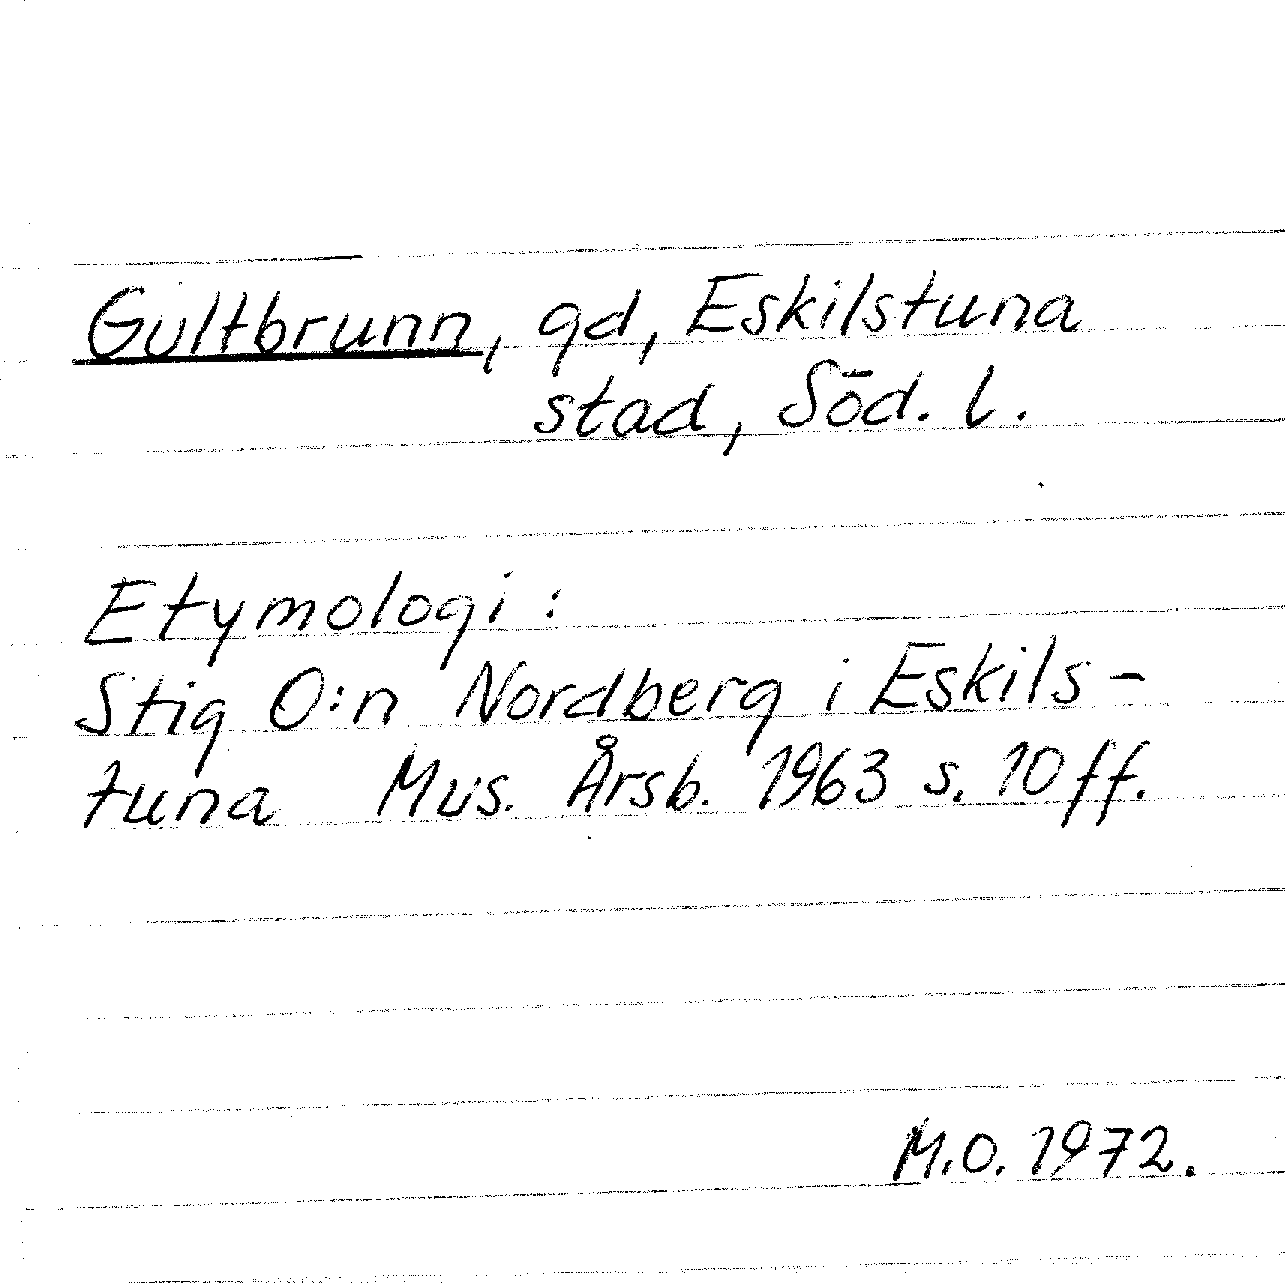 Gultbrunn, gd, Eskilstuna
stad, Söd. l.
Etymologi:
Stig O:n Nordberg i Eskils-
tuna Mus. Årsb. 1963 s. 10ff.
M.O. 1972.